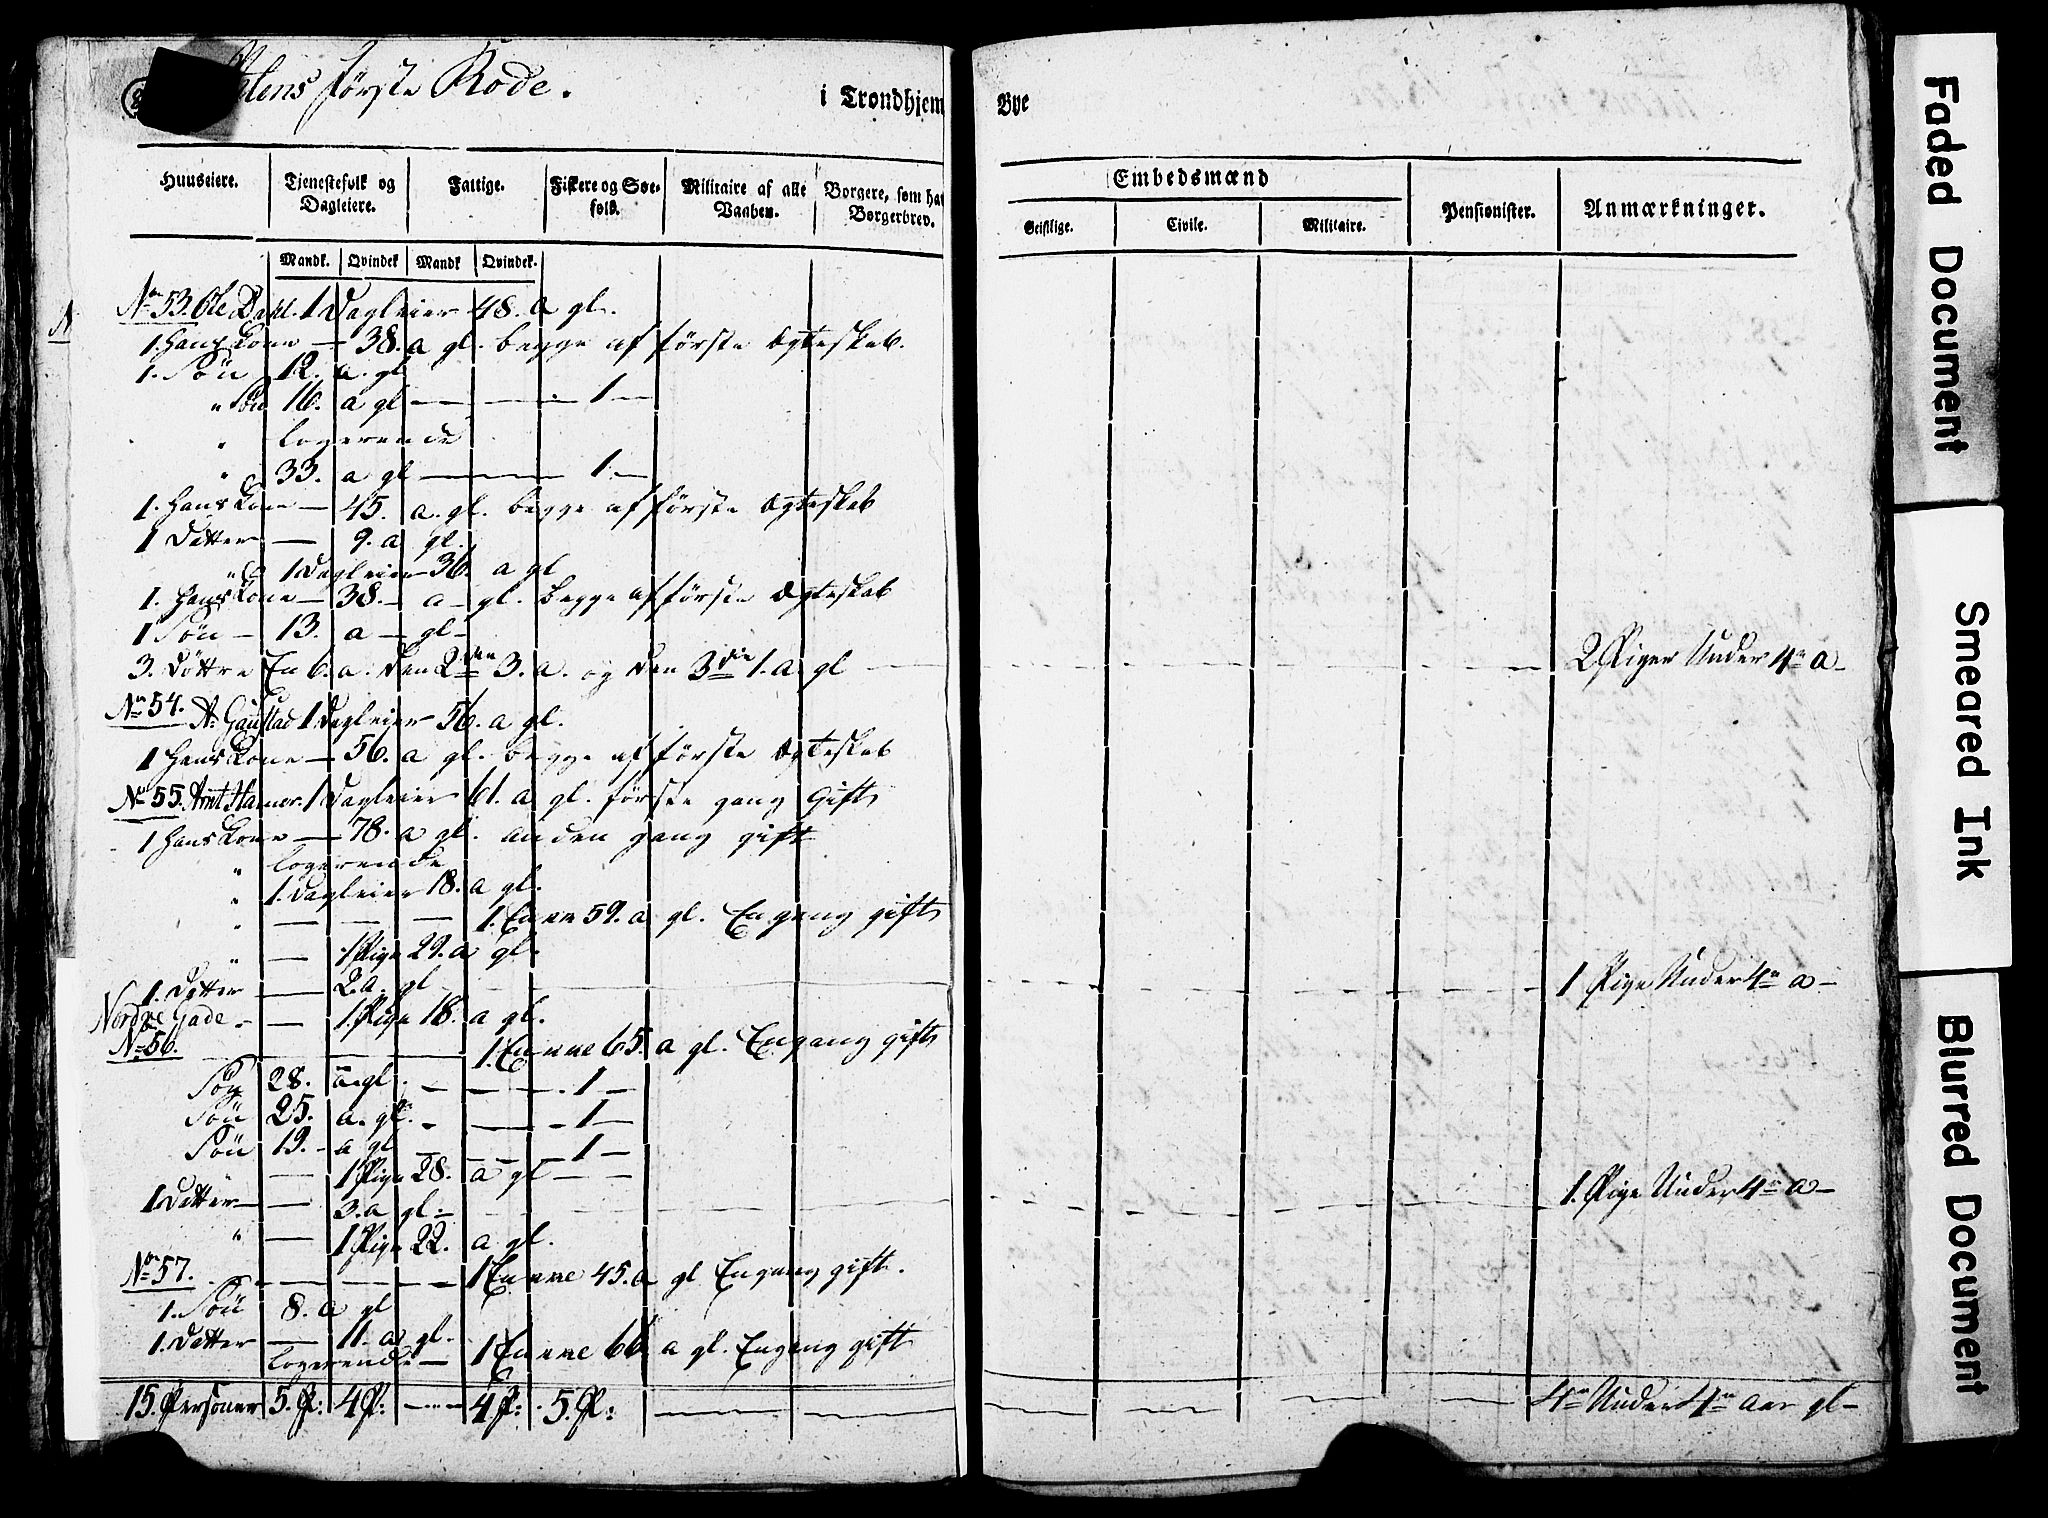 lens første Rode.
i Trondhjem Bye
Huuseiere. Tjenestefolk og Dagleiere. Fattige. Fiskere og Søefolk. Militaire af alle Vaaben. Borgere, som har Borgerbrev. Embedsmænd Pensionister. Anmærkninger.
Geistlige. Civile. Militaire.
Mandk. Qvindek Mandk Qvindek.
No 53. Ole Dahl. 1 Dagleier 48. a gl.
1. Hans Kone — 38. a gl. begge af første Ægteskab.
1. Søn 12. a. gl
" Søn 16. a gl — — 1 —
" logerende
" 33. a gl — — 1 —
1. Hans Kone — 45. a. gl. begge af første Ægteskab
1 Datter — 9. a gl.
" 1 Dagleier 36. a gl
1. Hans Kone — 38 — a — gl. begge af første Ægteskab
1 Søn — 13. a — gl —
3. Døttre En 6. a. den 2den 3. a. og den 3die 1. a gl — 2 Piger Under 4re a —
No 54. A. Gaustad 1 Dagleier 56. a gl.
1 Hans Kone — 56. a gl. begge af første Ægteskab
No 55. Arnt Hamer. 1 Dagleier 61. a gl. første gang Gift
1 Hans Kone — 78. a gl. anden gang gift
" logerende
" 1. Dagleier 18. a gl.
" — — — 1. Enke 59. a gl. Engang gift
" — 1 Pige 29. a gl.
1. Datter — 2. a. gl — 1 Pige Under 4re a —
Nordre Gade — — 1. Pige 18. a gl.
No 56. — — 1. Enke 65. a gl. Engang gift
Søn 28. a. gl. — — 1 —
Søn 25. a. gl. — — 1 —
Søn 19. — a gl — — 1 —
— 1 Pige 28. a gl — —
1 Datter — — 3. a gl. — 1. Pige Under 4re a —
" — 1 Pige 22. a gl.
No 57. — — — 1 Enke 45. a gl Engang gift.
1. Søn 8. a gl
1. Datter — 11. a gl.
logerende — 1 Enke 66 a gl. Engang gift
15. Personer 5. P: 4 P: — 4 P: 5. P: — — 4re Under 4re Aar gl —
Faded Document
Smeared Ink
Blurred Document